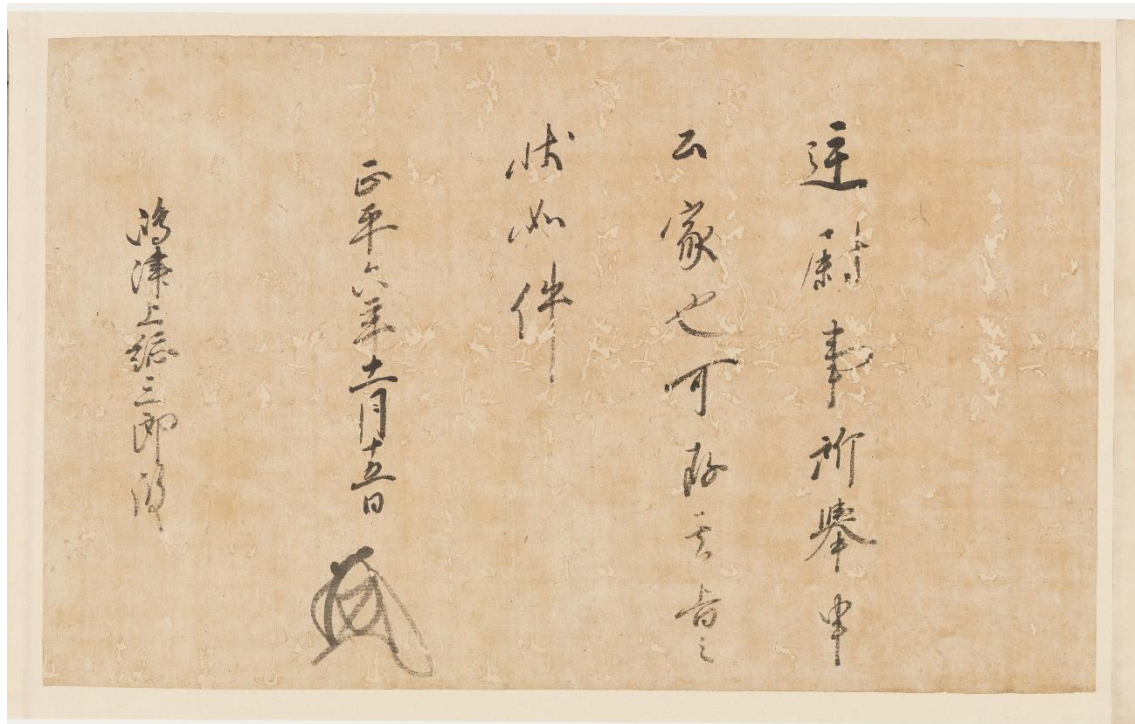 廷尉事所擧申
公家也可存其旨之
状如件
正平六年十一月十五日
嶋津上総三郎殿